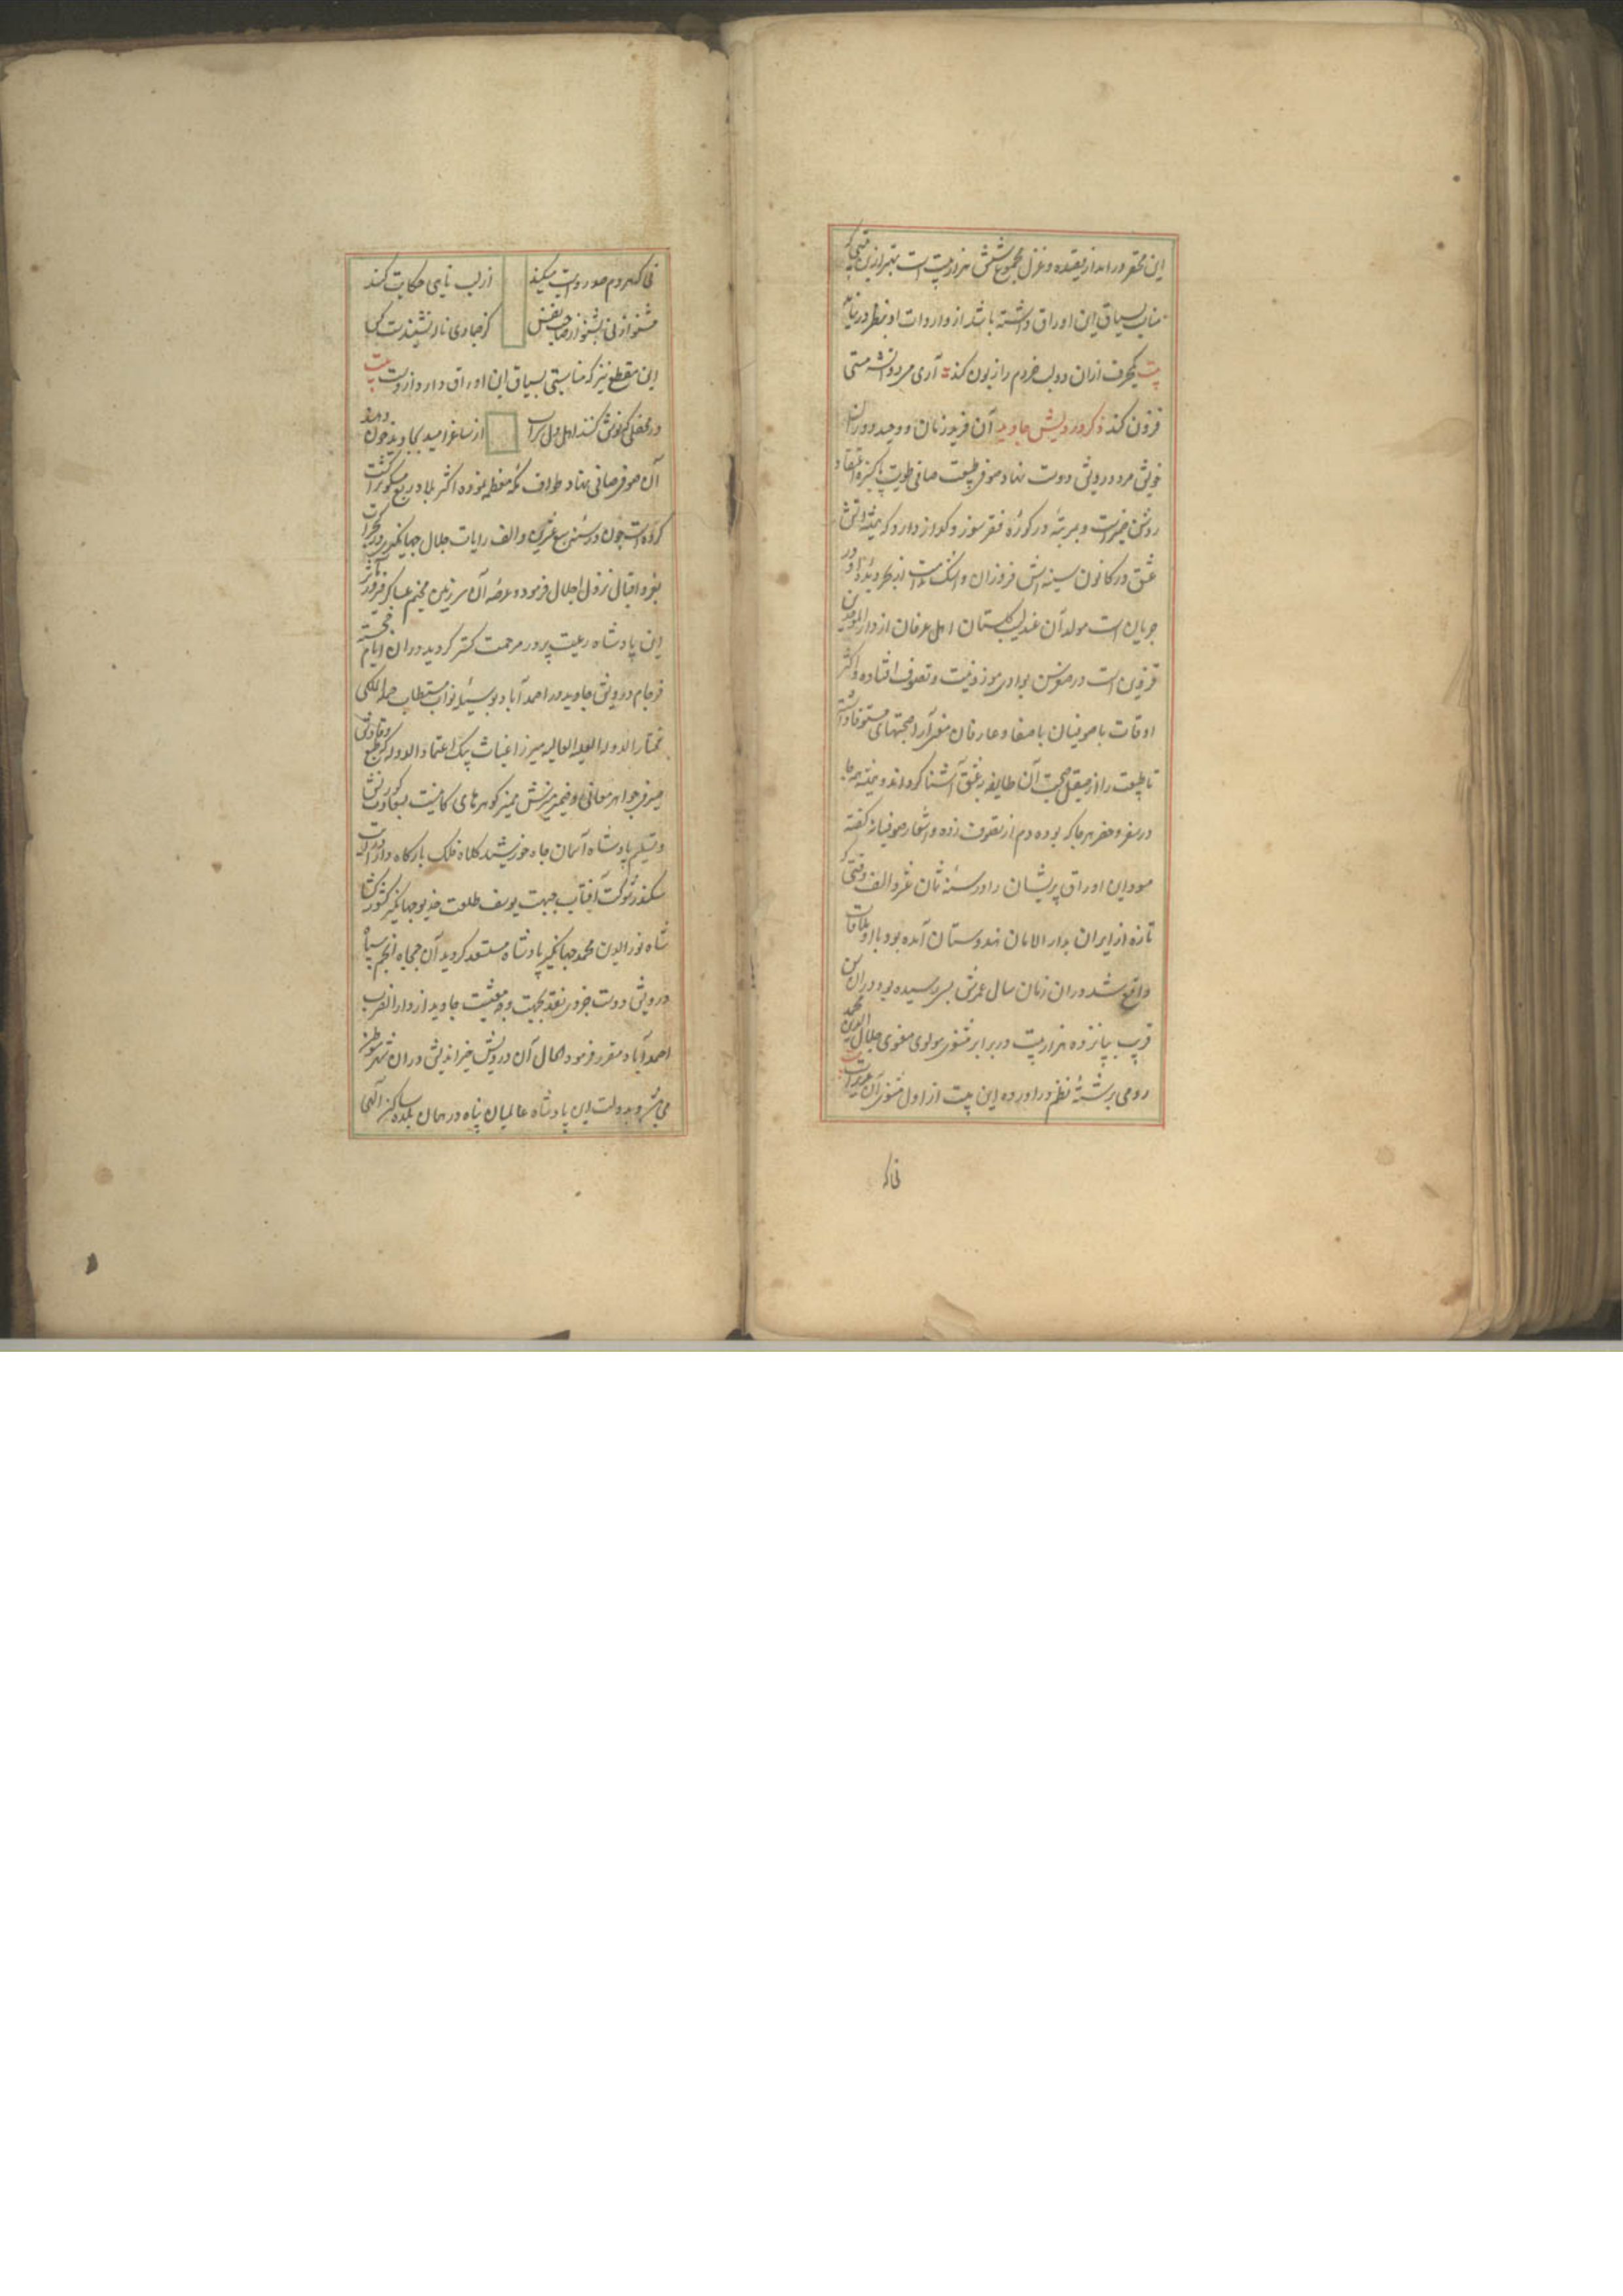 این محقر در آمد از قصیده و غزل مجموع شش هزار بیت است بهتر ازین بیتی که
مناسب سیاق این اوراق داشته باشد از واردات او بنظر در نیامد
بیت یکحرف ازان دو لب خردم را زبون کند آری می دو آتشه مستی
فزون کند ذکر درویش جاوید آن فرید زمان و وحید دوران
خویش مرد درویش دوست نهاد صوفی طبیعت صافی طویت پاکیزه اعتقاد
روشن ضمیر است و مرتبهٔ در کورهٔ فقر سوز و گداز دارد که همیشه آتش
عشق در کانون سینه اش فروزان و اشک ندامت از بحر دیدهٔ او در
جریان است مولد آن عندلیب گلستان اهل عرفان از دار الموحدین
قزوین است در صغر سن بوادی موزونیت و تصوف افتاده و اکثر
اوقات با صوفیان با صفا و عارفان معنی آرا صحبتهای مستوفا داشته
تا طبیعت را از صیقل صحبت آن طایفه بعشق آشنا کرداند و همیشه همه جا
در سفر و حضر هر جا که بوده دم از تصوف زده و اشعار صوفیانه گفته
مسود این اوراق پریشان را در سنه ثمان عشر و الف وقتی که
تازه از ایران بدار الامان هندوستان آمده بود با او ملاقات
واقع شد دران زمان سال عمرش بسی رسیده بود دران سن
قریب پانزده هزار بیت در برابر مثنوی مولوی معنوی جلال الدین محمد
رومی برشتهٔ نظم در آورده این بیت از اول مثنوی آن عزیز است
نی که
نی که هر دم صد روایت میکند از لب نایی حکایت میکند
مشنو از نی بشنو از صاحب نفس کز جمادی ناله نشنیدست کس
این مقطع نیز که مناسبتی بسیاق این اوراق دارد ازوست بیت
در محفلی که نوش کنند اهل دل شراب از ساغر امید بجاوید خون دهند
آن صوفی صافی نهاد طواف مکه معظمه نموده اکثر بلاد ربع مسکون را گشت
کرده است چون در سنه سبع عشرین و الف رایات جلال جهانگیری در گجرات
بعز و اقبال نزول اجلال فرموده عرصه آن سرزمین مخیم عساکر فیروزی مآثر
این پادشاه رعیت پرور مرحمت گستر گردید دران ایام خجسته
فرجام درویش جاوید در احمد آباد بوسیلهٔ نواب مستطاب جملة الملکی
مختار الدوله العلیه العالیه میرزا غیاث بیک اعتماد الدوله که طبع وقادش
صیرفی جواهر معانی و ضمیر منیرش ممیز گوهرهای کانیست بسعادت کورنش
و تسلیم پادشاه آسمان جاه خورشید کلاه فلک بارگاه دارا درایت
سکندر شوکت آفتاب جبهت یوسف طلعت خدیو جهانگیر کشورگشا
شاه نور الدین محمد جهانگیر پادشاه مستسعد گردید آن جمجاه انجم سپاه
درویش دوست جزوی نقد بجهت وجه معیشت جاوید از دار الضرب
احمد آباد مقرر فرمود الحال آن درویش خیر اندیش دران شهر متوطن
می شود بدولت این پادشاه عالمیان پناه در همان بلده ساکن الهی